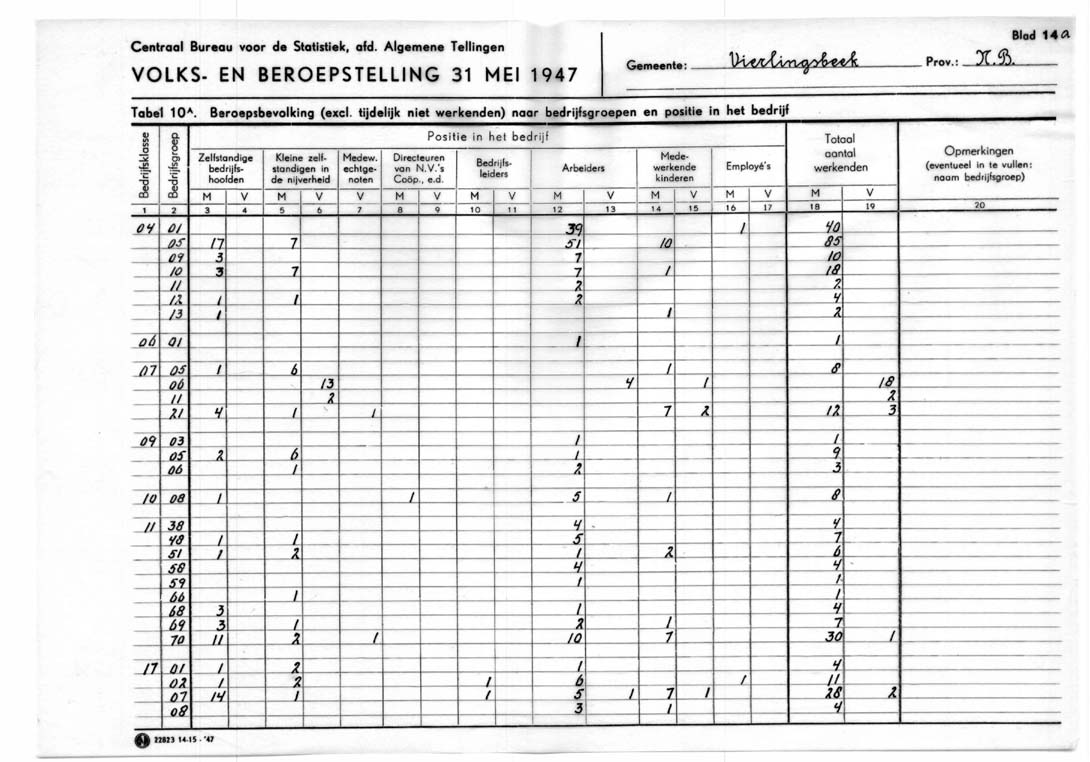 Blad 14a
Centraal Bureau voor de Statistiek, afd. Algemene Tellingen
VOLKS- EN BEROEPSTELLING 31 MEI 1947
Gemeente: Vierlingsbeek Prov.: N.B.
Tabel 10A. Beroepsbevolking (excl. tijdelijk niet werkenden) naar bedrijfsgroepen en positie in het bedrijf
Bedrijfsklasse
Bedrijfsgroep
Positie in het bedrijf
Zelfstandige bedrijfs-hoofden
Kleine zelf-standigen in de nijverheid
Medew. echtge-noten
Directeuren van N.V.'s Coöp., e.d.
Bedrijfs-leiders
Arbeiders
Mede-werkende kinderen
Employé's
Totaal aantal werkenden
Opmerkingen (eventueel in te vullen: naam bedrijfsgroep)
M V M V V M V M V M V M V M V M V
1 2 3 4 5 6 7 8 9 10 11 12 13 14 15 16 17 18 19 20
04 01 39 1 40
05 17 7 51 10 85
09 3 7 10
10 3 7 7 1 18
11 2 2
12 1 1 2 4
13 1 1 2
06 01 1 1
07 05 1 6 1 8
06 13 4 1 18
11 2 2
21 4 1 1 7 2 12 3
09 03 1 1
05 2 6 1 9
06 1 2 3
10 08 1 1 5 1 8
11 38 4 4
48 1 1 5 7
51 1 2 1 2 6
58 4 4
59 1 1
66 1 1
68 3 1 4
69 3 1 2 1 7
70 11 2 1 10 7 30 1
17 01 1 2 1 4
02 1 2 1 6 1 11
07 14 1 1 5 1 7 1 28 2
08 3 1 4
22823 14-15 - '47